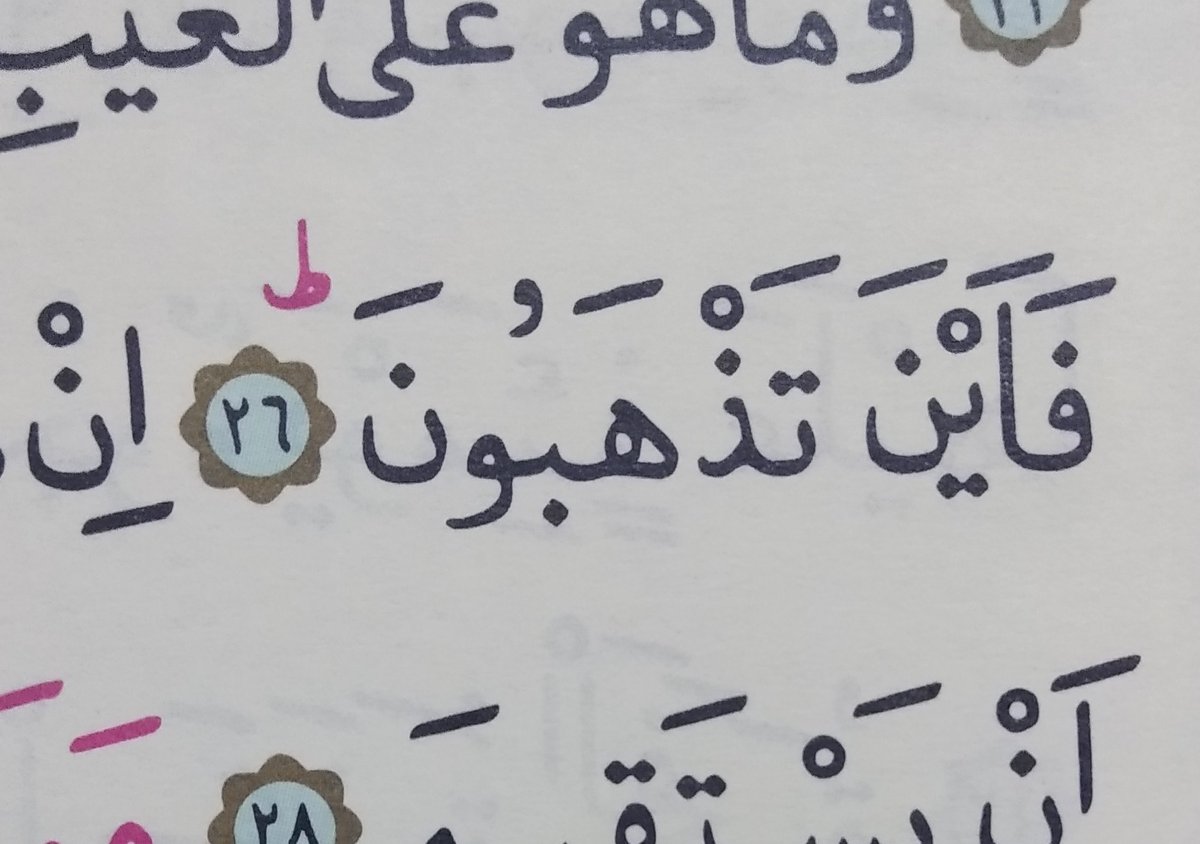 وما هو على الغيب
فَاَيْنَ تَذْهَبُونَ ٢٦ ط اِنْ
اَنْ يَسْتَقيمَ ٢٨